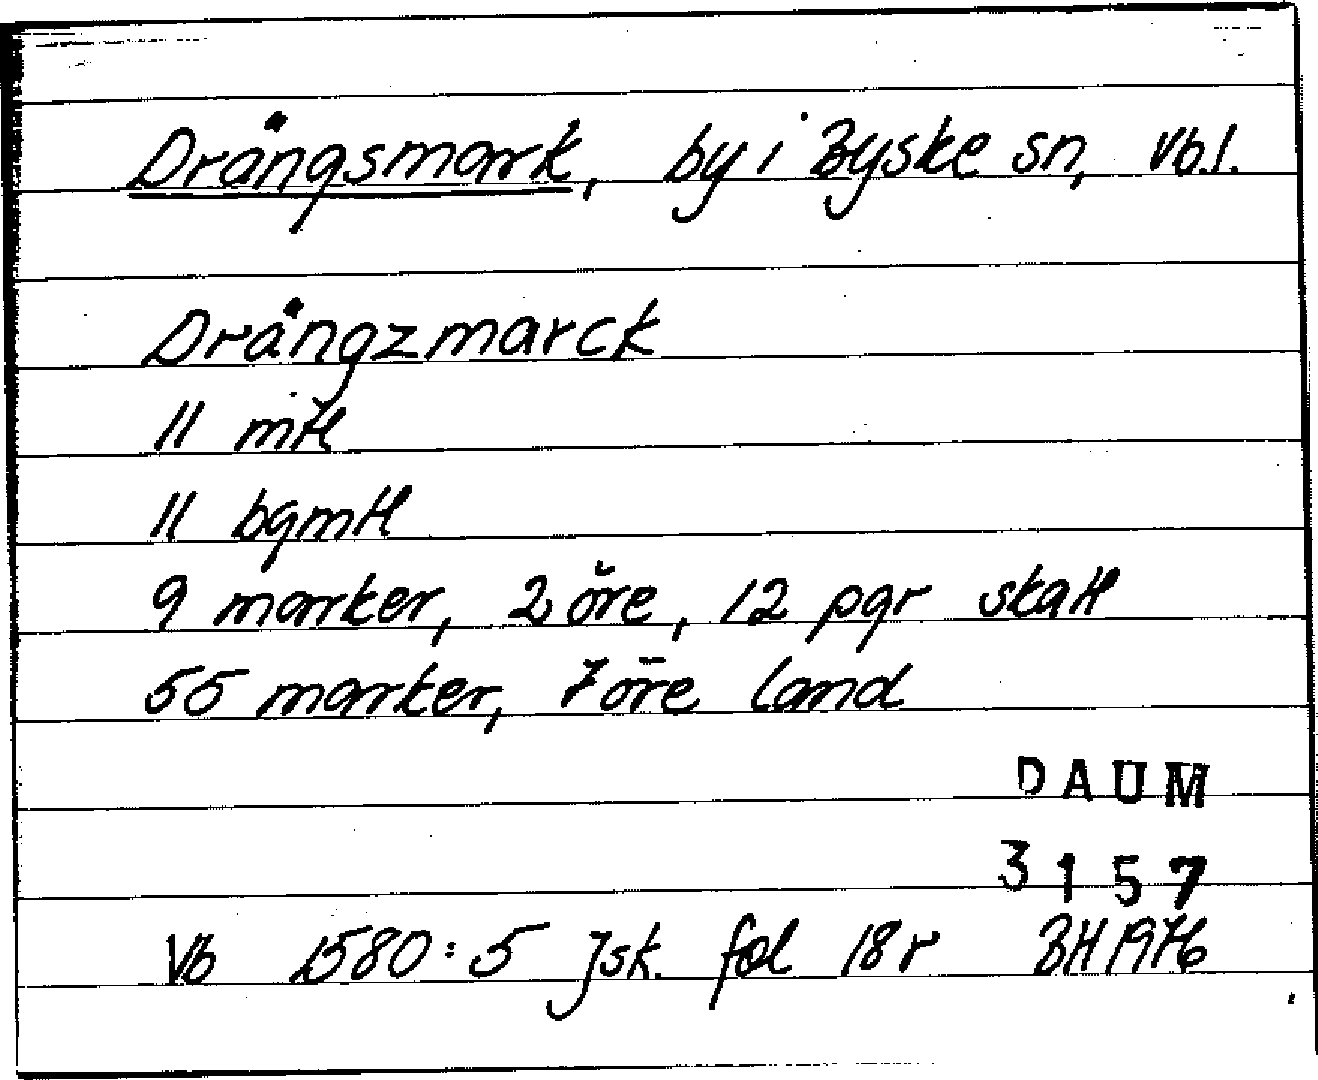 Drängsmark, by i Byske sn, Vb.l.
Drängzmarck
11 mtl
11 bgmtl
9 marker, 2 öre, 12 pgr skatt
55 marker, 7 öre land
DAUM
3157
Vb 1580:5 Jsk. fol 18 r BH 1976